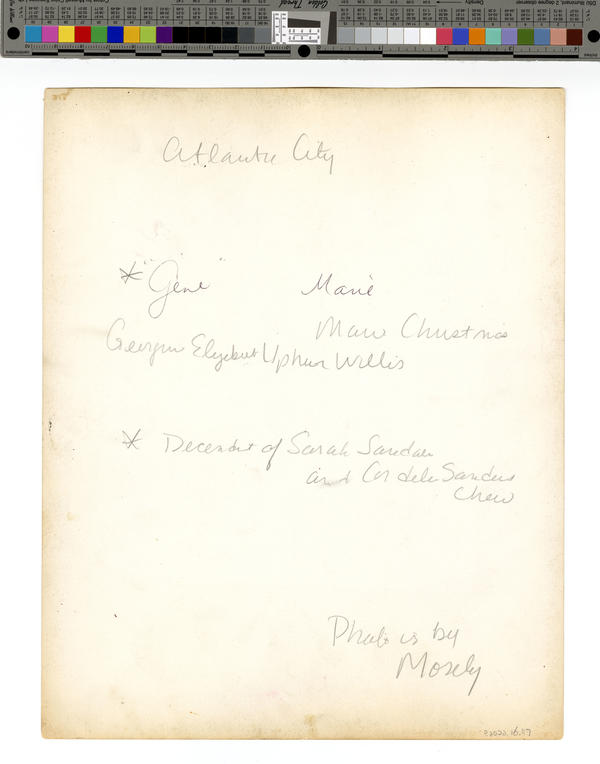 Atlantic City
* "Gene" Marie
Marie Christmas
Georgine Elyzebet Upshur Willis
* Decendt of Sarah Sanders
and Cordelia Sanders
Chew
Photo is by
Mosely